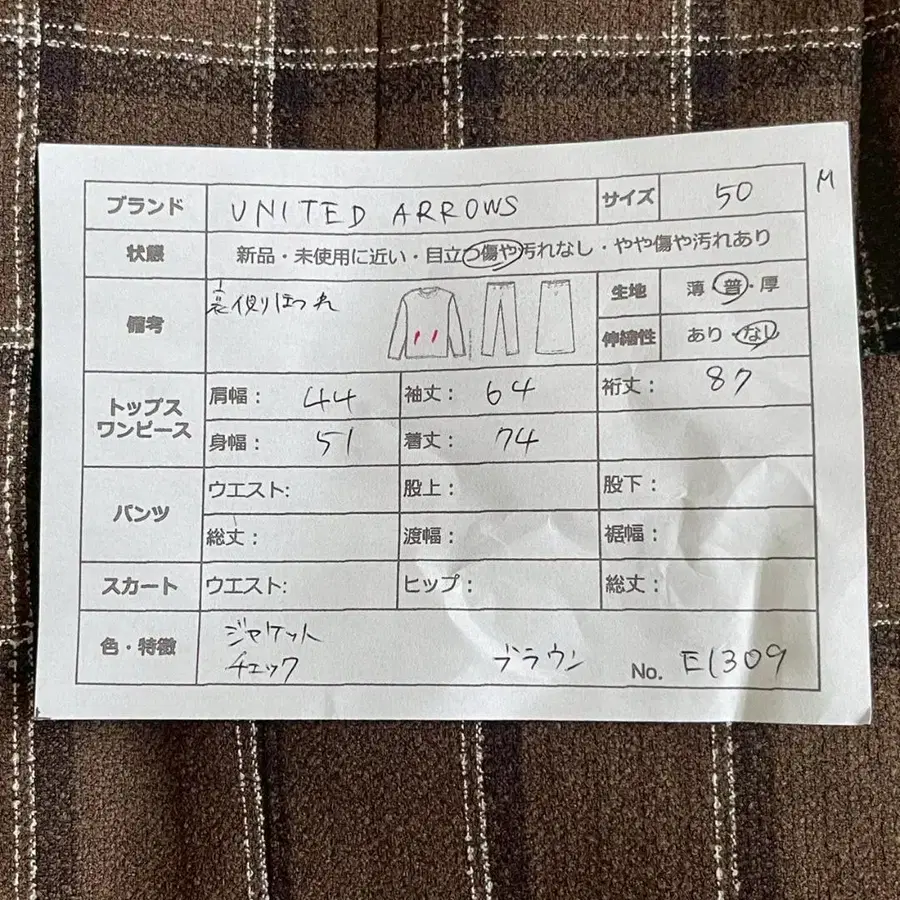 M
ブランド UNITED ARROWS サイズ 50
状態 新品・未使用に近い・目立つ傷や汚れなし・やや傷や汚れあり
備考 裏側ほつれ 生地 薄・普・厚
伸縮性 あり・なし
トップス ワンピース 肩幅: 44 袖丈: 64 裄丈: 87
身幅: 51 着丈: 74
パンツ ウエスト: 股上: 股下:
総丈: 渡幅: 裾幅:
スカート ウエスト: ヒップ: 総丈:
色・特徴 ジャケット
チェック ブラウン No. E1309